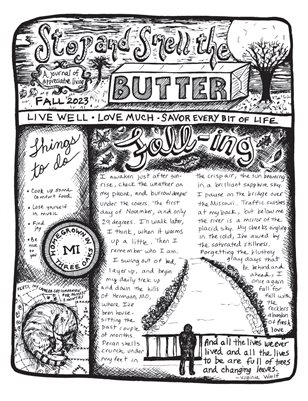 Stop and Smell the
BUTTER
A journal of
Appreciative living
FALL 2023
LIVE WELL • LOVE MUCH • SAVOR EVERY BIT OF LIFE
Things
to do
• Cook up some
comfort food.
• Lose yourself
in music.
• Find
joy
• Be
HOMEGROWN IN
MI
THREE OAKS
Fall-ing
I awaken just after sun-
rise, check the weather on
my phone, and burrow deeper
under the covers. The first
day of November, and only
29 degrees. I'll walk later,
I think, when it warms
up a little. Then I
remember who I am.
I swing out of bed,
layer up, and begin
my daily trek up
and down the hills
of Hermann, MO,
where I've
been house-
sitting the
past couple
of months.
Pecan shells
crunch under
my feet in
the crisp air, the sun beaming
in a brilliant sapphire sky.
I pause on the bridge over
the Missouri. Traffic swishes
at my back, but below me
the river is a mirror of the
placid sky. My cheeks tingling
in the cold, I'm awed by
the saturated stillness.
Forgetting the blustery
gray days that
lie behind and
ahead, I
once again
fall for
fall with
the
reckless
abandon
of fresh
love.
And all the lives we ever
lived and all the lives
to be are full of trees
and changing leaves.
-Virginia Woolf